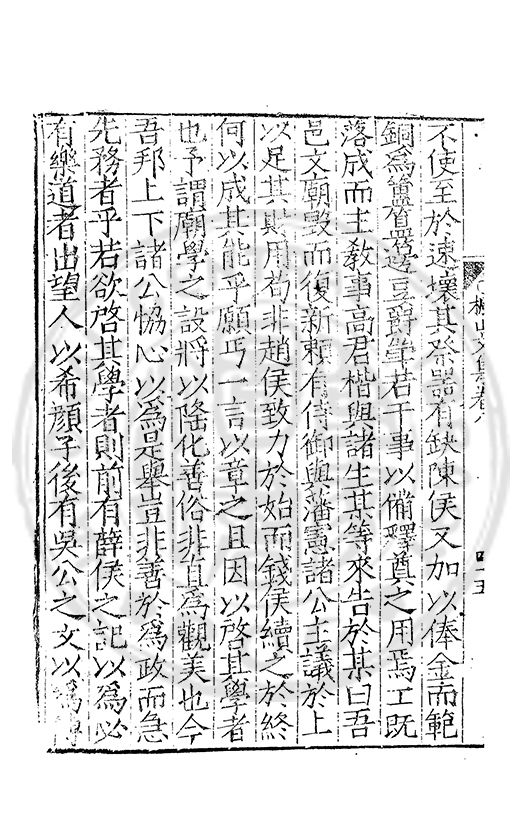 不使至於速壞其祭器有缺陳侯又加以俸金而範
銅為簠簋罍籩豆爵斝若干事以備釋奠之用焉工既
落成而主教事高君楷與諸生某等來告於某曰吾
邑文廟毀而復新賴有侍御與藩憲諸公主議於上
以足其財用苟非趙侯致力於始而錢侯續之於終
何以成其能乎願丐一言以章之且因以啓其學者
也予謂廟學之設將以隆化善俗非直為觀美也今
吾邦上下諸公恊心以為是舉豈非善於為政而急
先務者乎若欲啓其學者則前有薛侯之記以為必
有樂道者出望人以希顏子後有吳公之文以為
山文集卷八
四十五